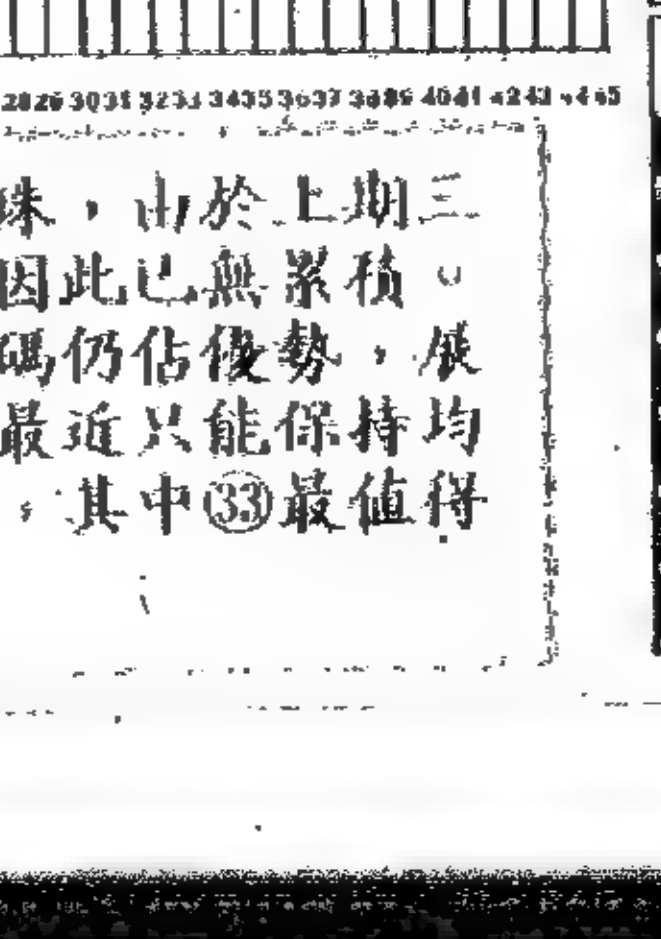 28 29 30 31 32 33 34 35 36 37 38 39 40 41 42 43 44 45
珠，由於上期三
因此已無累積。
碼仍佔優勢，展
最近只能保持均
，其中㉝最值得